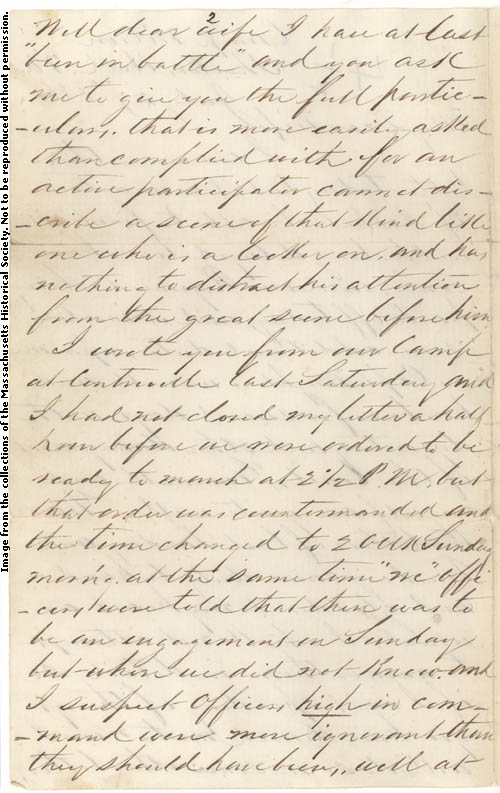 2
Well dear wife I have at last
"been in battle" and you ask
me to give you the full partic-
-ulars. that is more easily asked
than complied with for an
active participator cannot dis-
-cribe a scene of that kind like
one who is a looker on, and has
nothing to distract his attention
from the great scene before him
I wrote you from our Camp
at Centreville last Saturday and
I had not closed my letter a half
hour before we were ordered to be
ready to march at 2 1/2 P.M. but
that order was countermanded and
the time changed to 2 O'Clk Sunday
morn'g. at the same time "we" offi
-cers were told that there was to
be an engagement on Sunday
but where we did not know. and
I suspect Officers high in com-
-mand were more ignorant than
they should have been, well at
Image from the collections of the Massachusetts Historical Society. Not to be reproduced without permission.